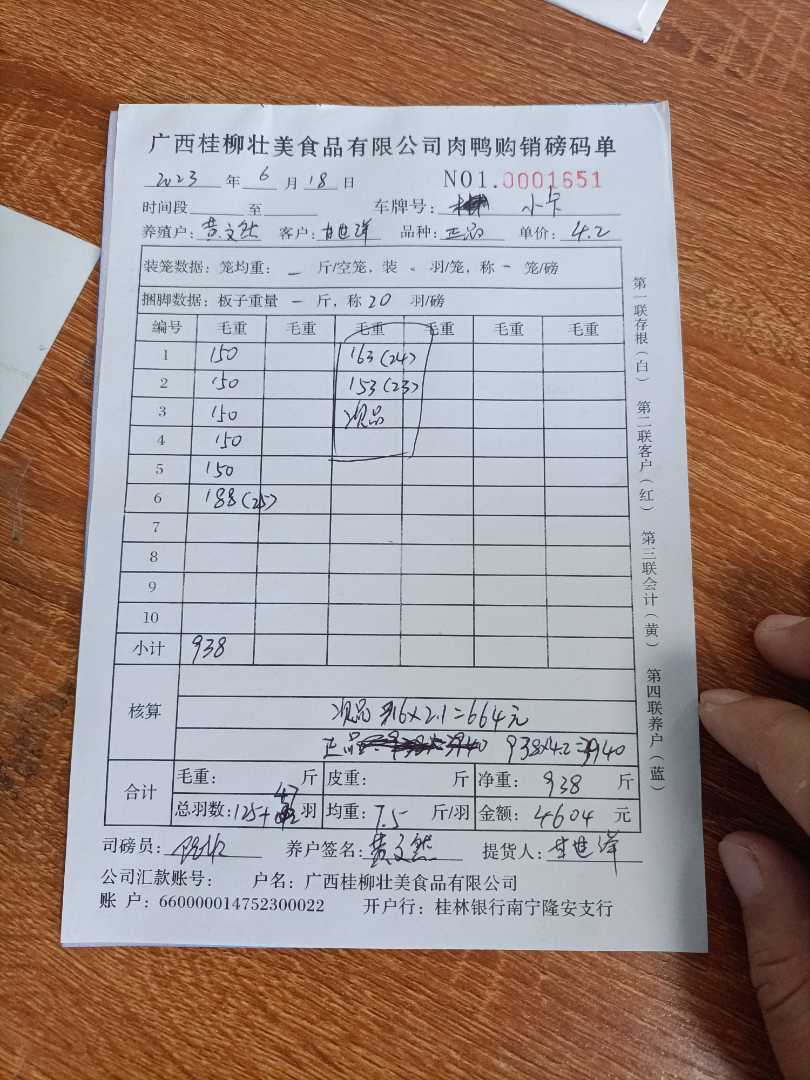 广西桂柳壮美食品有限公司肉鸭购销磅码单
2023 年 6 月 18 日 NO1.0001651
时间段 至 车牌号: 小卡
养殖户: 黄文然 客户: 甘世洋 品种: 单价: 4.2
装笼数据: 笼均重: - 斤/空笼, 装 - 羽/笼, 称 - 笼/磅
捆脚数据: 板子重量 - 斤, 称 20 羽/磅
编号 毛重 毛重 毛重 毛重 毛重 毛重
1 150 163(24)
2 150 153(23)
3 150 次品
4 150
5 150
6 188(25)
7
8
9
10
小计 938
核算
次品 316×2.1=664元
正品 938×4.2=3940
合计 毛重: 斤 皮重: 斤 净重: 938 斤
总羽数: 125+47 羽 均重: 7.5 斤/羽 金额: 4604 元
司磅员: 养户签名: 黄文然 提货人: 甘世洋
公司汇款账号: 户名: 广西桂柳壮美食品有限公司
账 户: 660000014752300022 开户行: 桂林银行南宁隆安支行
第一联存根(白) 第二联客户(红) 第三联会计(黄) 第四联养户(蓝)